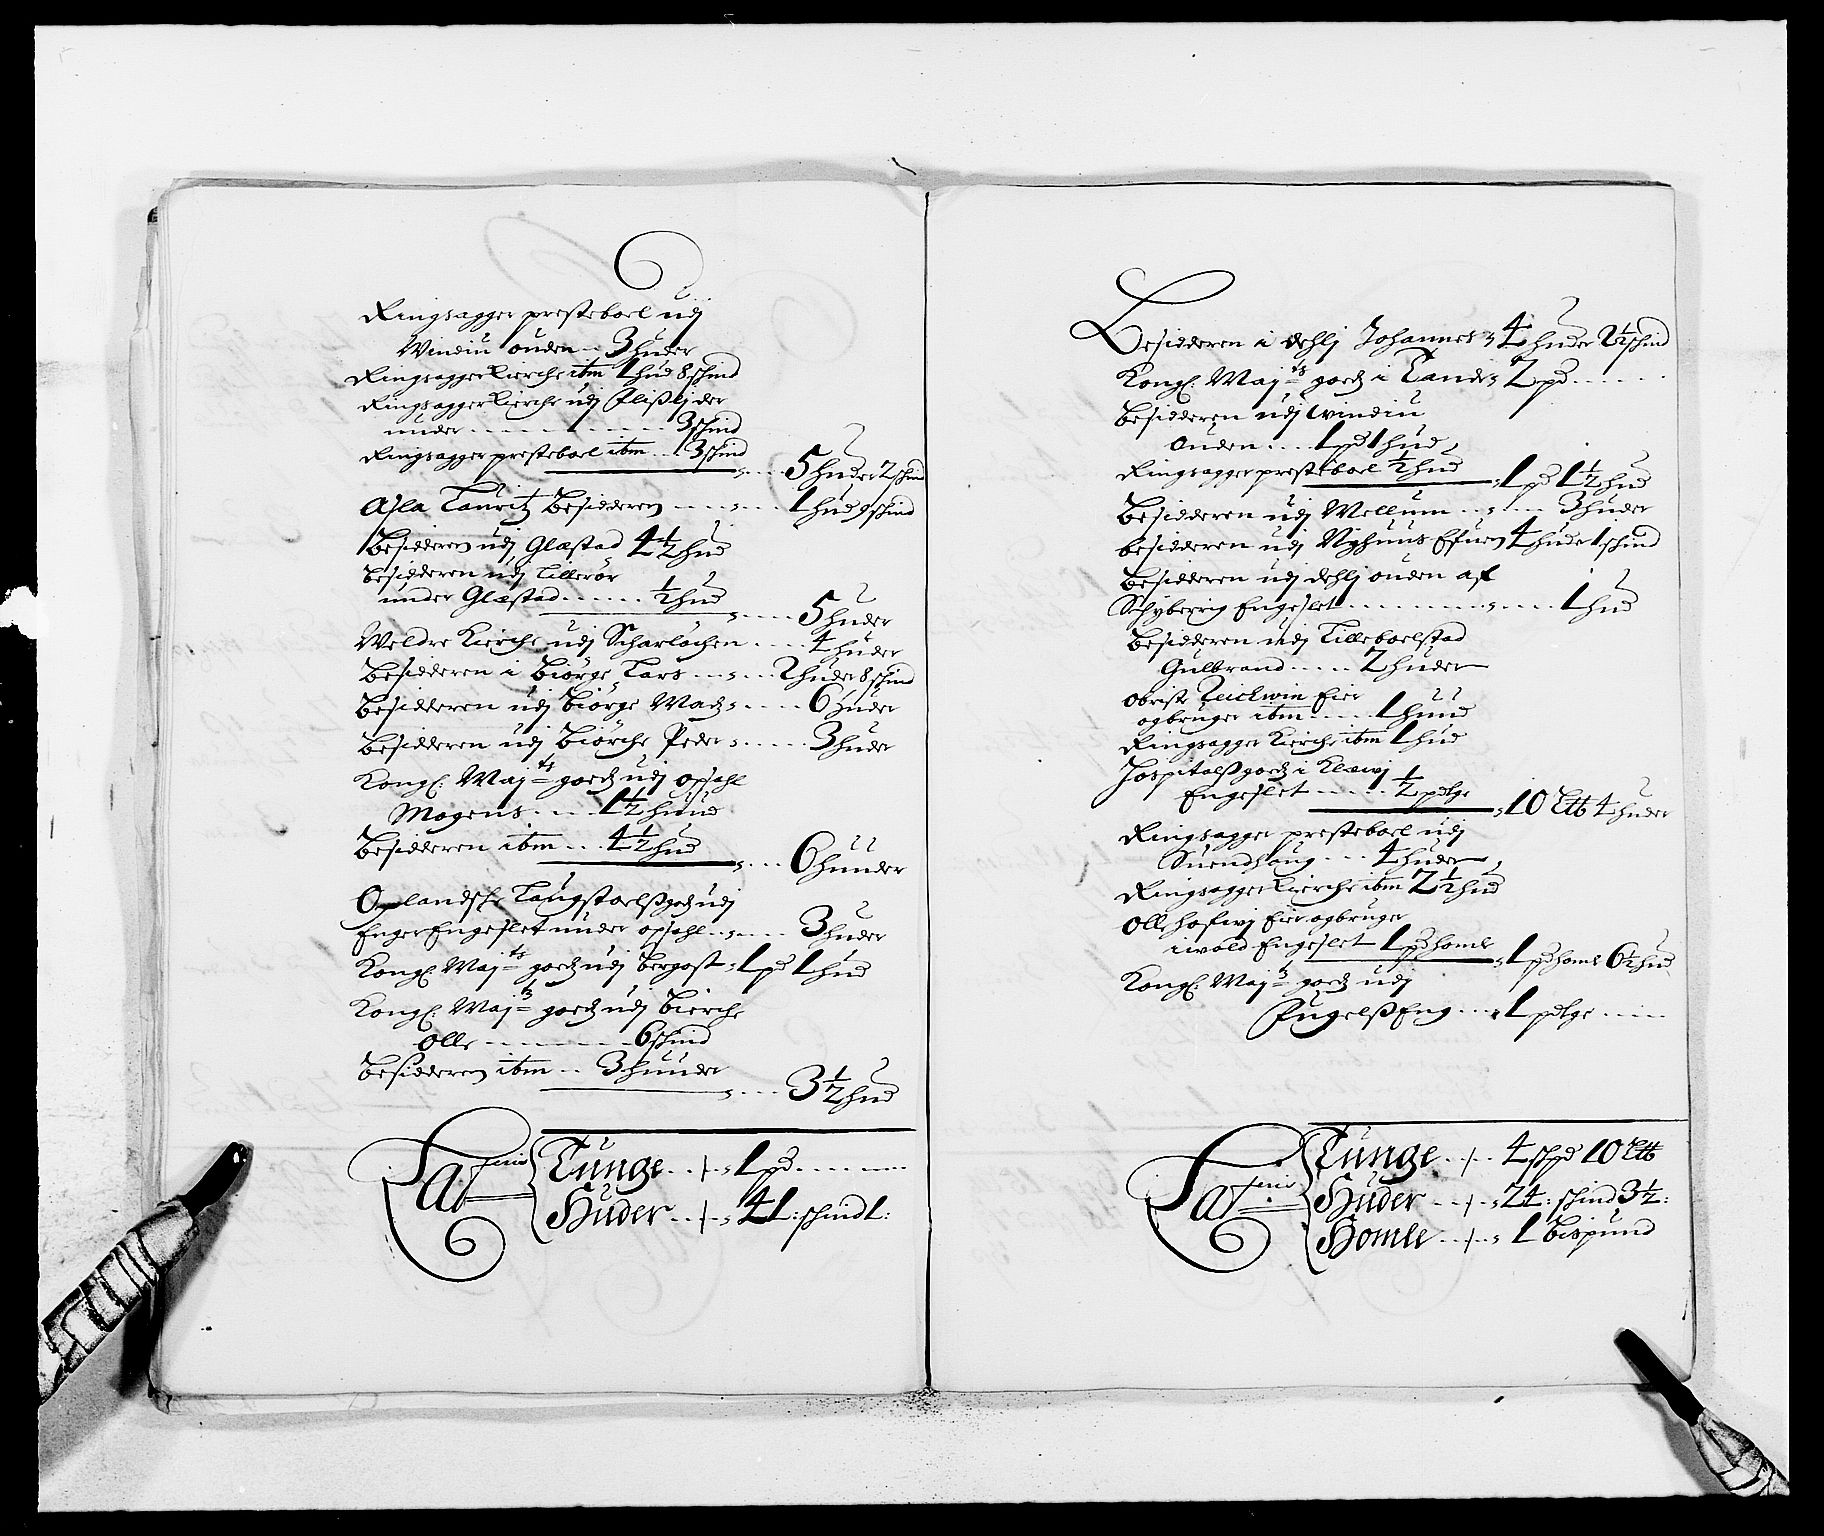 Ringsagger presteboel udj
Windiu ouden .. 3 huder
Ringsagger Kierche ibm 1 hud 8 schind
Ringsagger Kierche udj Flißlj der
under - - - - - 3 schind
Ringsagger presteboel ibm .. 3 schind
5 huder 2 schind
Asla Lauritz Besidderen - - - - 1 hud 9 schind
Besidderen udj Glæstad 4½ hud
Besidderen udj Lillerør
under Glæstad ...... ½ hud
5 huder
Weldre Kierche udj Scharlochen ..... 4 huder
Besidderen i Biørge Lars ....... 2 huder 8 schind
Besidderen udj Biørge Madz ..... 6 huder
Besidderen udj Biørche Peder ..... 3 huder
Kongl: Maj:ts goedz udj opsahl
Mogens .... 1½ huud
Besidderen ibm ... 4½ hud
6 huuder
Oplandsche Laugstoelßgodz udj
Enger Engeslet under opsahl ...... 3 huder
Kongl: Maj:ts goedz udj bergost - 1 pd 1 hud
Kongl: Maj:ts goedz udj Bierche
Olle - - - - - 6 schind
Besidderen ibm .. 3 huuder
3½ hud
Lateris Tunge .. 1 pd
Huder .. 41: schind 1:
Besidderen i dehlj Johannes 4 huder 2½ schind
Kongl: Maj:ts goedz i Tande 2 pd
Besidderen udj windiu
Ouden .... 1 pd 1 hud
Ringsagger presteboel ½ hud
1 pd 1½ hud
Besidderen udj Mellum ...... 3 huder
besidderen udj Nyhuus Efuen 4 huder 1 schind
Besidderen udj dehlj ouden af
Schyberrig Engeslet .......... 1 hud
Besidderen udj Lilleboelstad
Gulbrand ..... 2 huder
obriste Zeickwin Eier
ogbruger ibm ..... 1 huud
Ringsagger Kierche ibm 1 hud
Hospitalß goedz i Klæwj
Engeslet ..... ½ pdtge
10 Ltb 4 huder
Ringsagger presteboel udj
Suendhaug ... 4 huder
Ringsagger Kierche ibm 2½ hud
Olle hofwj Eier ogbruger
i wold Engeslet 1 pd homle
1 pd homle 6½ hud
Kongl: Maj:ts goedz udj
FugelßEng ... 1 pdtge
Lateris Tunge .. 4 schpd 10 Ltb
Huder .. 24: schind 3½:
Homle .. 1 bispund